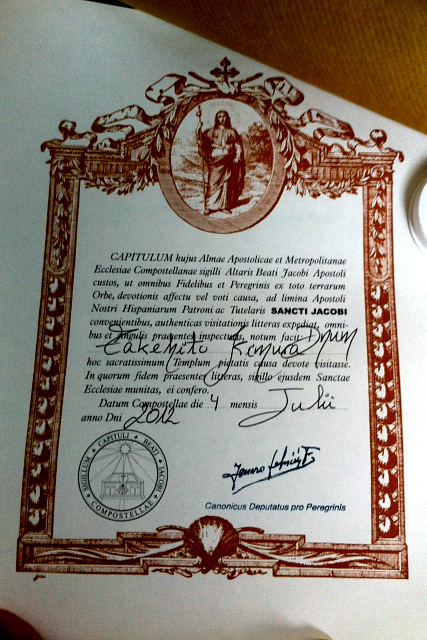 CAPITULUM hujus Almae Apostolicae et Metropolitanae
Ecclesiae Compostellanae sigilli Altaris Beati Jacobi Apostoli
custos, ut omnibus Fidelibus et Peregrinis ex toto terrarum
Orbe, devotionis affectu vel voti causa, ad limina Apostoli
Nostri Hispaniarum Patroni ac Tutelaris SANCTI JACOBI
convenientibus, authenticas visitationis litteras expediat, omni-
bus et singulis praesentes inspecturis, notum facit: Dnum
Takehito Kimura
hoc sacratissimum Templum pietatis causa devote visitasse.
In quorum fidem praesentes litteras, sigillo ejusdem Sanctae
Ecclesiae munitas, ei confero.
Datum Compostellae die 4 mensis Julii
anno Dni 2012
SIGILLUM CAPITULI BEATI JACOBI
COMPOSTELLAE
Canonicus Deputatus pro Peregrinis